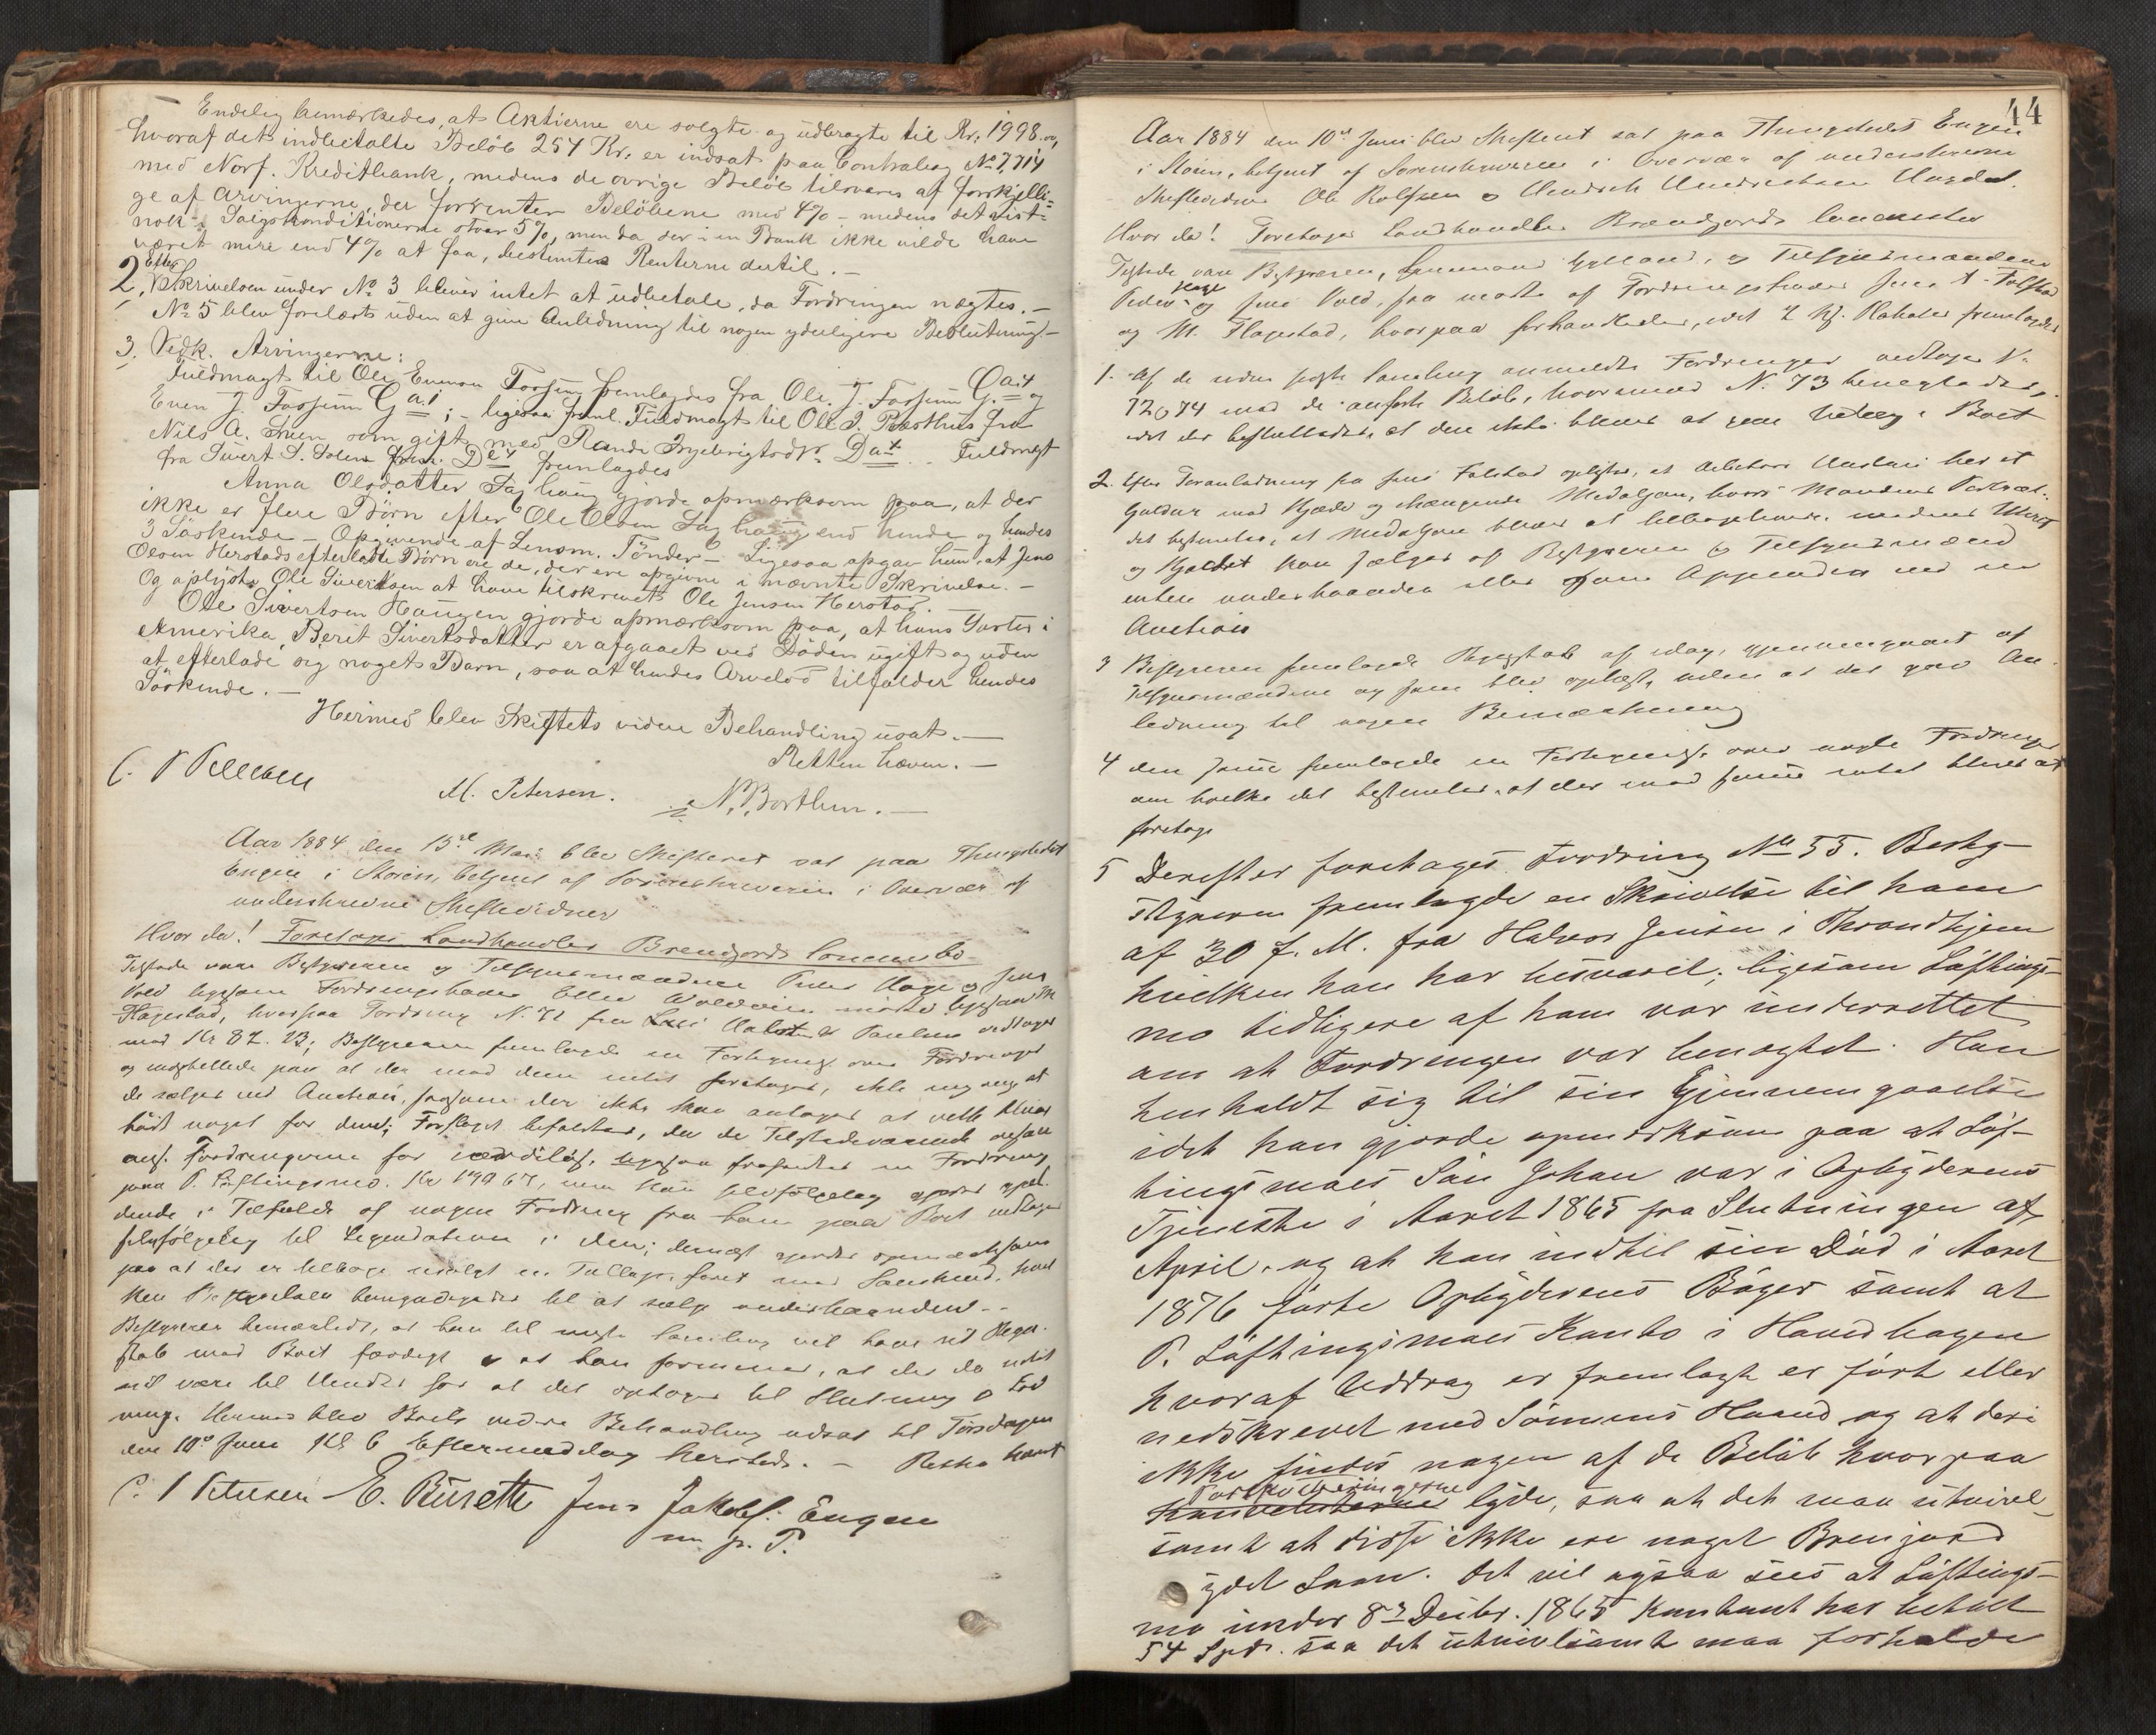 Endelig bemærkedes, at Aktierne ere solgte og udbragte til Kr. 1998.00,
hvoraf det indbetalte Beløb 254 Kr. er indsat paa Contrabog No 7,714
med Norf. Kreditbank, medens de øvrige Beløb tilsvares af forskjelli-
ge af Arvingerne, der forrenter Beløbene med 4% – medens det sidst-
nok i Salgskonditionerne staar 5%, men da der i en Bank ikke vilde have
været mere end 4% at faa, bestemtes Renterne dertil. –
2, Efter Skrivelsen under No 3 bliver intet at udbetale, da Fordringen nægtes. –
No 5 blev forelæst uden at give Anledning til nogen yderligere Beslutning. –
3, Vedk. Arvingerne:
Fuldmagt til Ole Evenson Fossum fremlagdes fra Ole J. Fossum G. og
Even J. Fossum G; – ligesaa freml. Fuldmagt til Ole J. fra
Nils A. som gift med Randi D. Fuldmagt
fra Sivert S. Solem fremlagdes
Anna Olsdatter Saghaug gjorde opmærksom paa, at der
ikke er flere Børn efter Ole Olsen Saghaug end hende og hendes
3 Søskende – Opgivende af Lensm. Tönder – Ligesaa opgav hun, at Jens
Olsen Herstads efterladte Børn ere de, der ere opgivne i nævnte Skrivelse. –
Og oplyste Ole Sivertsen at have tilskrevet Ole Jensen Herstad.
Ole Sivertsen Haugen gjorde opmærksom paa, at hans Søster i
Amerika, Berit Sivertsdatter er afgaaet ved Døden ugift og uden
at efterlade sig noget Barn, saa at hendes Arvelod tilfalder hendes
Søskende. –
Hermed blev Skiftets videre Behandling udsat. –
Retten hævet. –
M. Petersen. N. Borthen. –
Aar 1884 den 15de Mai blev Skifteret sat paa Thingstedet
Engen i Støren, betjent af Sorenskriveren i Overvær af
underskrevne Skiftevidner
Hvor da! Foretoges Landhandler Brenjords Concursbo
Tilstede vare Bestyreren og Tilsynsmændene Peder Hage og Jens
Vold ligesom Fordringshaver mødte ligesaa M
Flagestad, hvorpaa Fordring N. 71 fra Paulsen vedtoges
med Kr 82. 23; Bestyreren fremlagde en Fortegnelse over Fordringer
og indstillede paa at der med dem intet foretages, ikke engang at
de sælges ved Auction, saasom der ikke kan antages at ville blive
budt noget for dem; Forslaget befulgtes, da de Tilstedeværende ogsaa
ans. Fordringerne for værdiløse, ligesaa frafaldtes en Fordring
paa P. Løftingsmo. Kr 1790 67, men kan selvfølgelig gjøres gjæl-
dende i Tilfælde af nogen Fordring fra ham paa Boet vedtages
selvfølgelig til Liqvidation i den; dernæst gjordes opmærksom
paa at der er tilbage usolgt en med Saueskind, hvil
ken Bestyrelsen bemyndigedes til at sælge underhaanden. –
Bestyreren bemærkede, at han til næste Samling vil have sit Regn-
skab med Boet færdigt og at han formener, at der da intet
vil være til Hinder for at det optages til Slutning og Ud
ning. Hermed blev Boets videre Behandling udsat til Tirsdagen
den 10de Juni Kl 6 Eftermiddag hersteds. – Retten hævet
C. Petersen E. Burette Jens Jakobs. Engen
m. p. P.
44
Aar 1884 den 10de Juni blev Skifteret sat paa Thingstedet Engen
i Støren, betjent af Sorenskriveren i Overvær af underskrevne
Skiftevidner Ole Rolfsen og Hendrik Hendriksen
Hvor da! Foretoges Landhandler Brændjords Concursbo
Tilstede vare Bestyreren, Lensmand Gylland, og Tilsynsmændene
Peder Hage og Jens Vold, saa mødte af Fordringshavere Jens A. Folstad
og M. Flagestad, hvorpaa forhandledes, idet fremlagdes
1. Af de siden sidste Samling anmeldte Fordringer vedtoges N.
72 og 74 med de anførte Beløb, hvorimod N. 73 benegtedes,
idet der besluttedes, at den ikke bliver at give Udlæg i Boet
2. Efter Foranledning fra Jens Folstad oplystes, at har et
Guldur med Kjæde og vedhængende Medaljon, hvori Mandens Portræt.
det bestemtes, at Medaljonen bliver at tilbagelevere medens Uhret
og Kjædet kan sælges af Bestyreren og Tilsynsmænd
enten underhaanden eller som Appendix ved en
Auction
3 Bestyreren fremlagde Regnskab af idag, gjennemgaaet af
Tilsynsmændene og som blev oplæst, uden at det gav An-
ledning til nogen Bemærkning
4 den samme fremlagde en Fortegnelse over nogle Fordringer
om hvilke det bestemtes, at der med samme intet bliver at
foretage
5 Derefter foretoges Fordring No 55. Besty-
styreren fremlagde en Skrivelse til ham
af 30 f. M. fra Halvor Jensen i Throndhjem
hvilken han har besvaret; ligesom Løftings-
mo tidligere af ham var underrettet
om at Fordringen var benægtet. Han
henholdt sig til sin Gjennemgaaelse
idet han gjorde opmærksom paa at Løf-
tingsmoes Søn Johan var i Opbyderens
Tjeneste i Aaret 1865 fra Slutningen af
April, og at han indtil sin Død i Aaret
1876 førte Opbyderens Bøger samt at
P. Løftingsmoes Konto i Hovedbogen
hvoraf Uddrag er fremlagt er ført eller
nedskrevet med Sønnens Haand og at deri
ikke findes nogen af de Beløb hvorpaa
Postkvitteringerne lyde, saa at det maa utvivl-
somt at disse ikke ere noget Brenjord
ydet Laan. Det vil ogsaa sees at Løftings-
mo under 8de Decbr. 1865 kontant har betalt
54 Spd. saa det utvivlsomt maa forholde